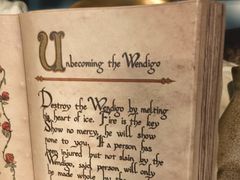 Unbecoming the Wendigo
Destroy the Wendigo by melting
his heart of ice. Fire is the key
Show no mercy, he will show
none to you. If a person has
been injured but not slain by the
Wendigo, said person will only
be made whole by the